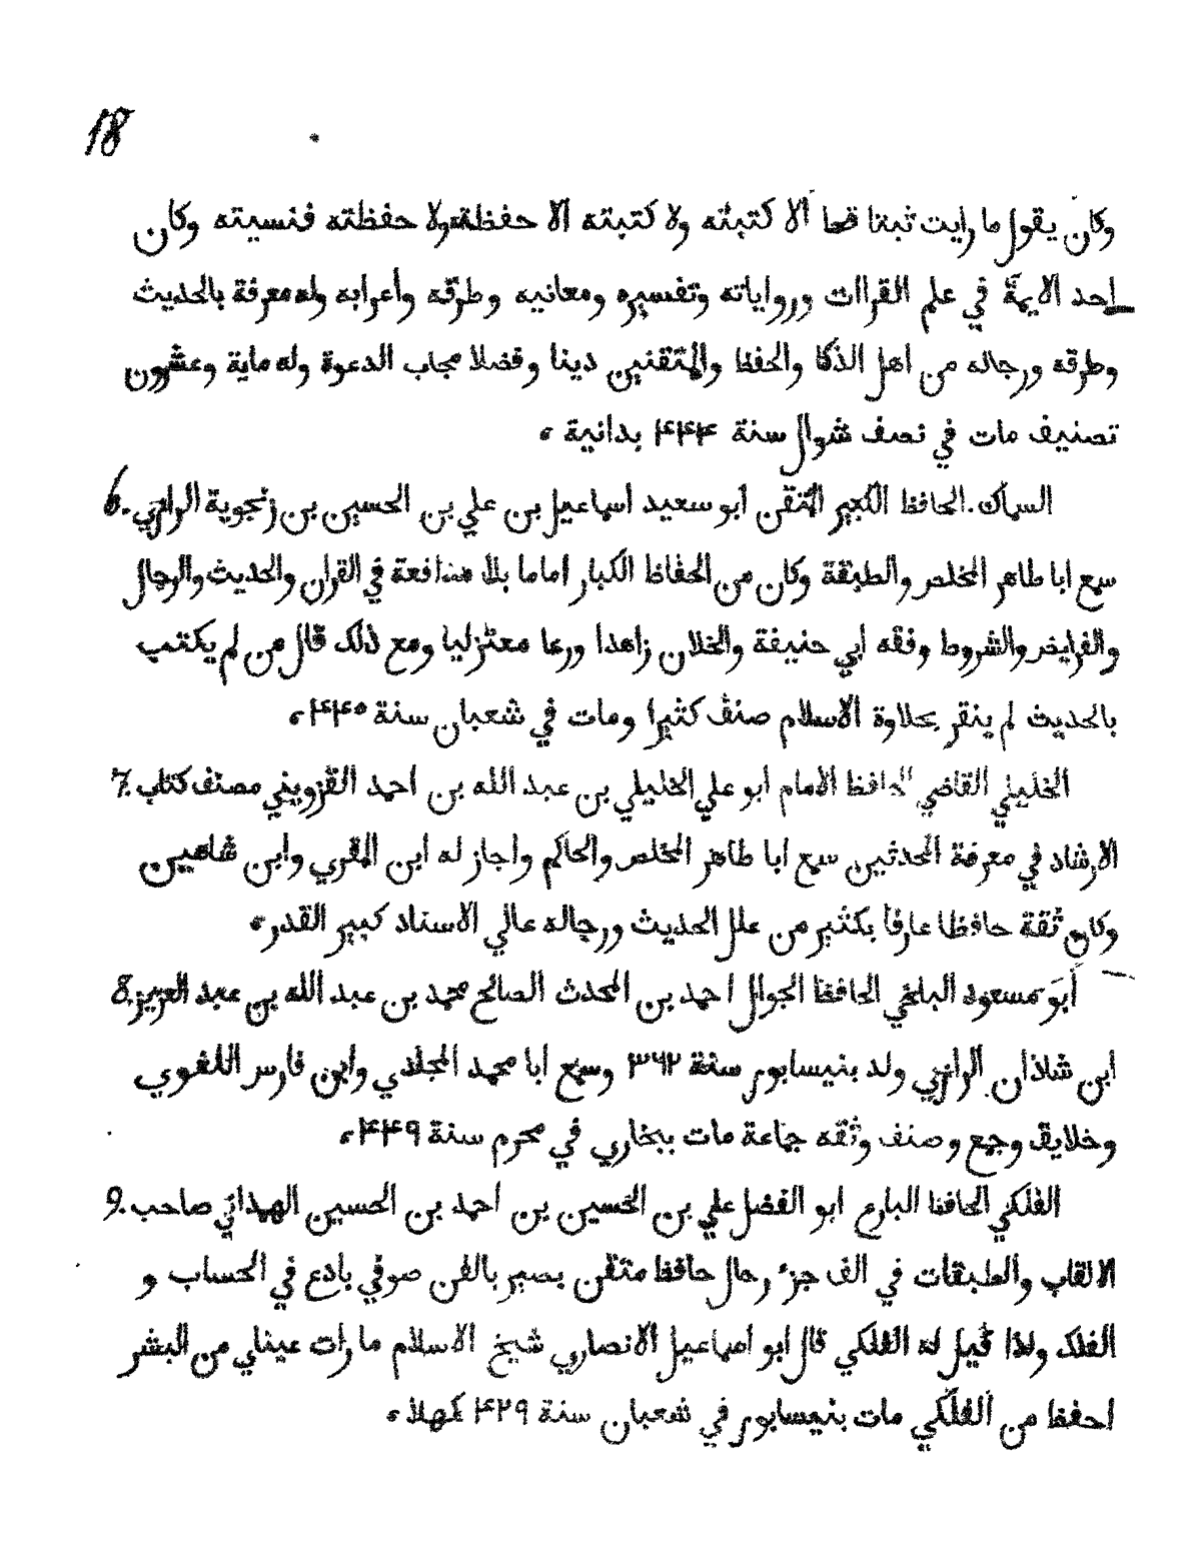 18
وكان يقول ما رايت ثبتا قط الا كتبته ولا كتبته الا حفظته ولا حفظته فنسيته وكان
احد الايمة في علم القراات ورواياته وتفسيره ومعانيه وطرقه واعرابه وله معرفة بالحديث
وطرقه ورجاله من اهل الذكا والحفظ والمتقنين دينا وفضلا مجاب الدعوة وله ماية وعشرون
تصنيف مات في نصف شوال سنة ۴۴۴ بدانية ۰
6. السماك. الحافظ الكبير المتقن ابو سعيد اسماعيل بن علي بن الحسين بن زنجوية الرازي
سمع ابا طاهر المخلص والطبقة وكان من الحفاظ الكبار اماما بلا مدافعة في القران والحديث والرجال
والفرايض والشروط وفقه ابي حنيفة والخلان زاهدا ورعا معتزليا ومع ذلك قال من لم يكتب
بالحديث لم ينقر بحلاوة الاسلام صنف كثيرا ومات في شعبان سنة ۴۴۵ ۰
7. الخليلي القاضي الحافظ الامام ابو علي الخليلي بن عبد الله بن احمد القزويني مصنف كتاب
الارشاد في معرفة المحدثين سمع ابا طاهر المخلص والحاكم واجاز له ابن المقري وابن شاهين
وكان ثقة حافظا عارفا بكثير من علل الحديث ورجاله عالي الاسناد كبير القدر ۰
8. ابو مسعود البلخي الحافظ الجوال احمد بن المحدث الصالح محمد بن عبد الله بن عبد العزيز
ابن شاذان الرازي ولد بنيسابور سنة ۳۶۲ وسمع ابا محمد المجلدي وابن فارس اللغوي
وخلايق وجمع وصنف وثقه جماعة مات ببخاري في محرم سنة ۴۴۹ ۰
9. الفلكي الحافظ البارع ابو الفضل علي بن الحسين بن احمد بن الحسين الهمداني صاحب
الالقاب والطبقات في الف جزء رحال حافظ متقن بصير بالفن صوفي بادع في الحساب و
الفلك ولذا قيل له الفلكي قال ابو اسماعيل الانصاري شيخ الاسلام ما رات عيناي من البشر
احفظ من الفلكي مات بنيسابور في شعبان سنة ۴۲۹ كهلا ۰